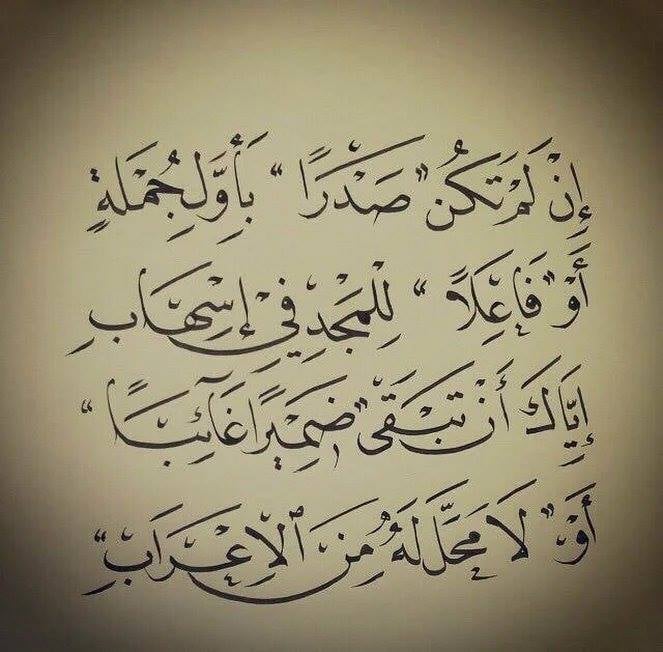 إِنْ لَمْ تَكُنْ "صَدْرًا" بِأَوَّلِ جُمْلَةٍ
أَوْ "فَاعِلًا" لِلْمَجْدِ فِيْ إِسْهَابِ
إِيَّاكَ أَنْ تَبْقَى "ضَمِيْرًا غَائِبًا"
أَوْ "لَا مَحَلَّ لَهُ مِنَ الْإِعْرَابِ"